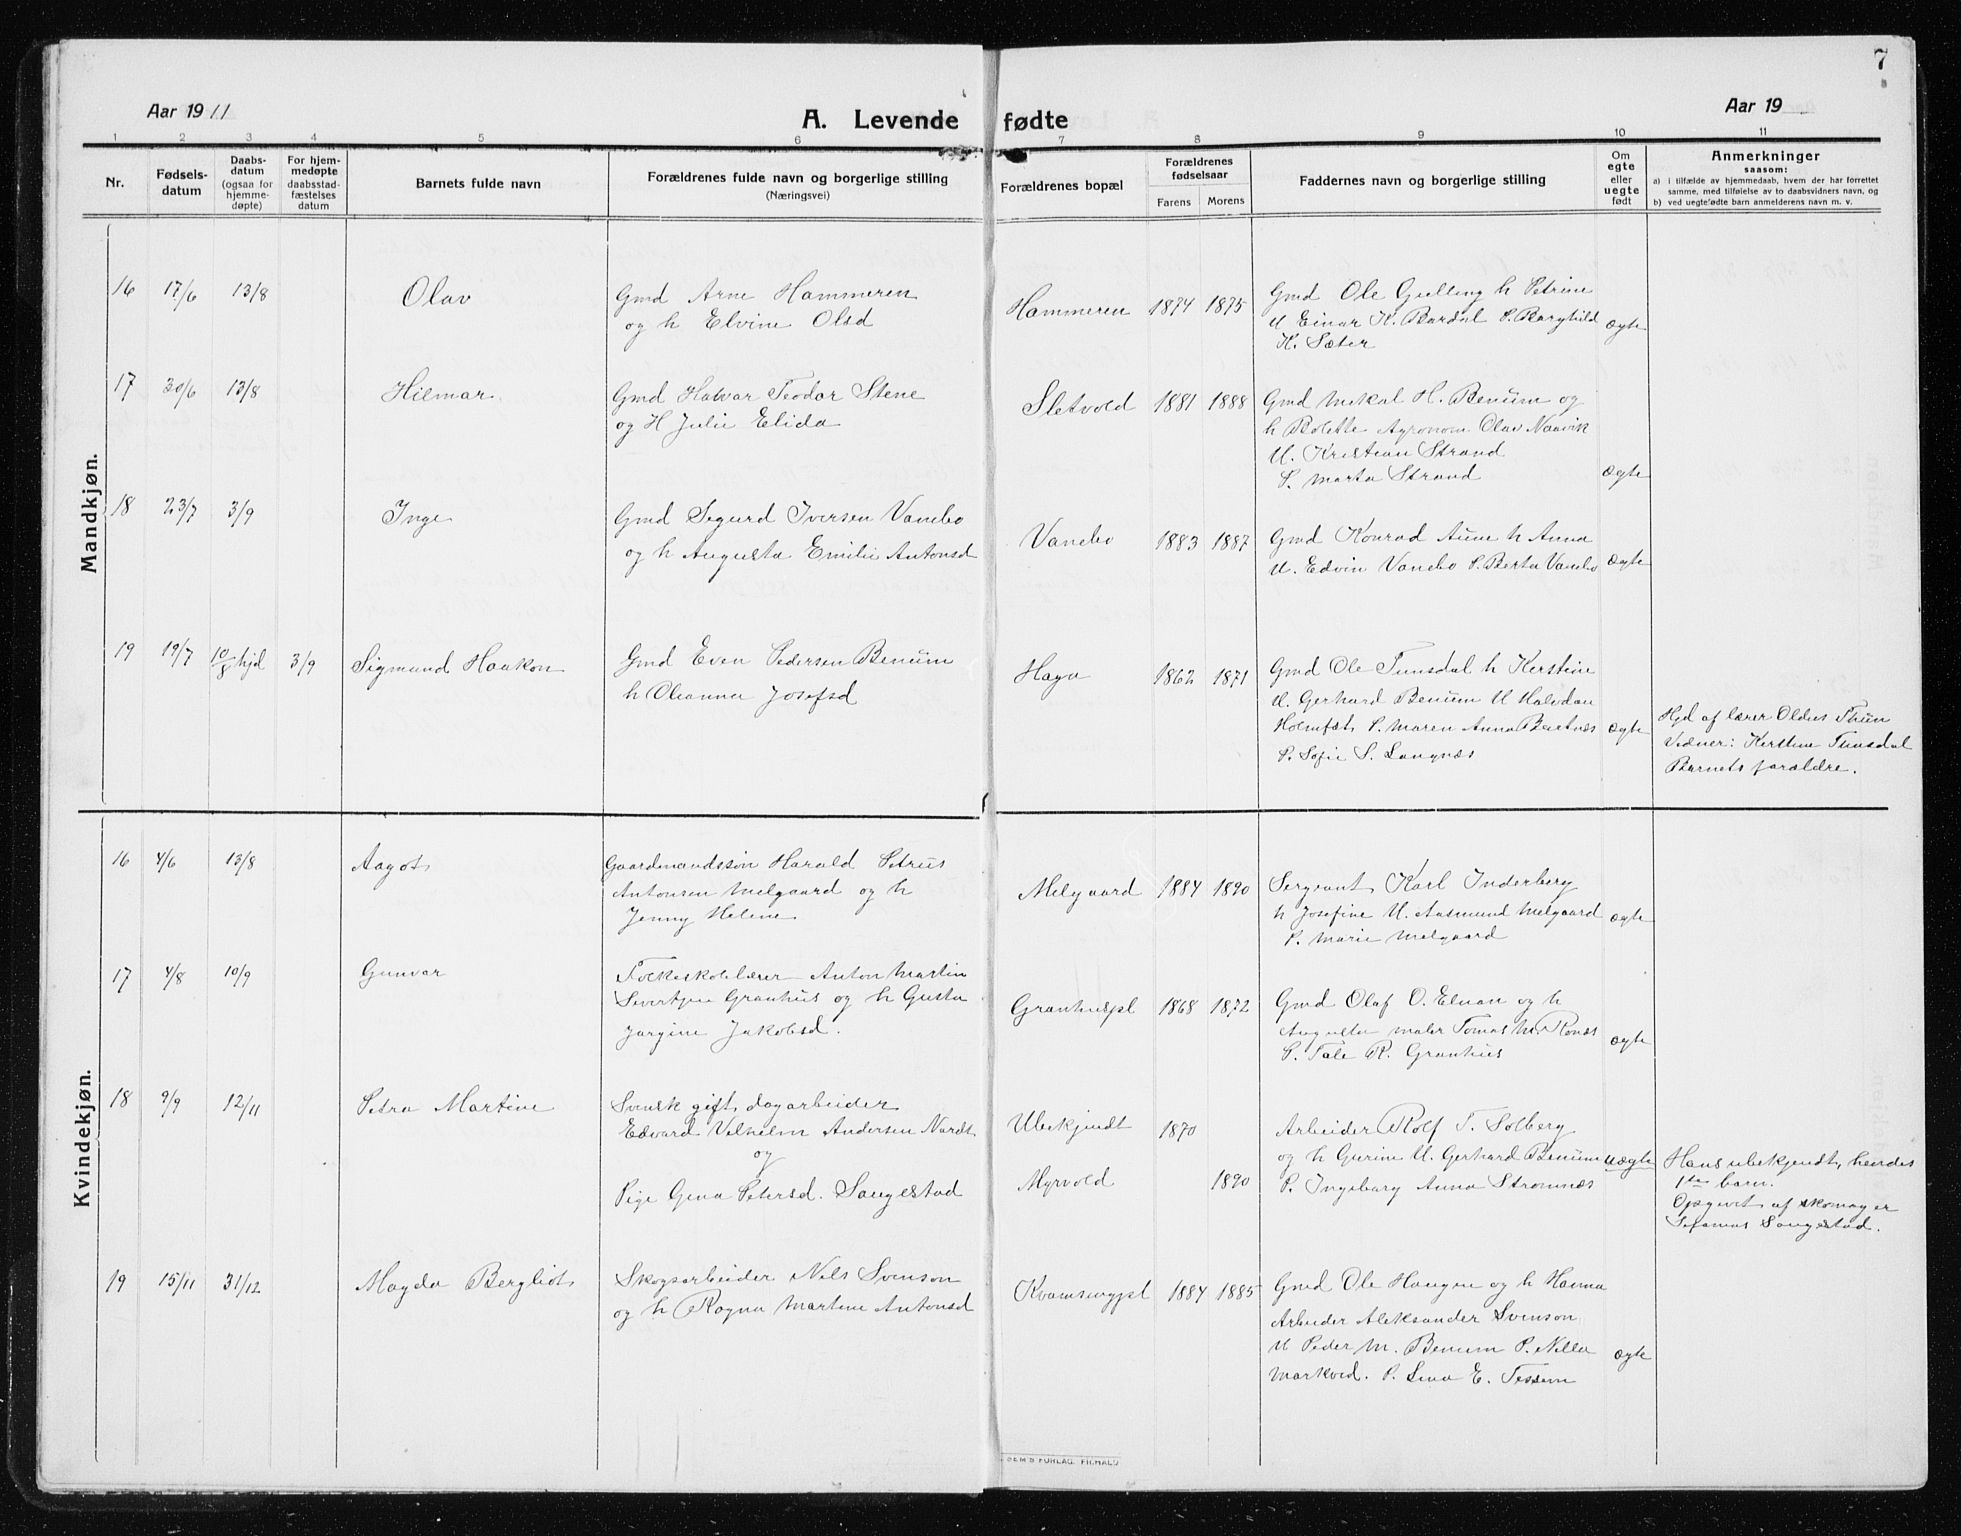 7
Aar 1911
A. Levende fødte
Aar 19
1 2 3 4 5 6 7 8 9 10 11
Nr.
Fødsels-
datum
Daabs-
datum
(ogsaa for
hjemme-
døpte)
For hjem-
medøpte
daabsstad-
fæstelses
datum
Barnets fulde navn
Forældrenes fulde navn og borgerlige stilling
(Næringsvei)
Forældrenes bopæl
Forældrenes
fødselsaar
Farens Morens
Faddernes navn og borgerlige stilling
Om
egte
eller
uegte
født
Anmerkninger
saasom:
a) i tilfælde av hjemmedaab, hvem der har forrettet
samme, med tilføielse av to daabsvidners navn, og
b) ved uegtefødte barn anmelderens navn m. v.
Mandkjøn.
16 17/6 13/8 Olav
Gmd Arne Hammeren
og h Elvine Olsd
Hammeren 1874 1875
Gmd Ole Gulling h Petrine
U Einar K. Bardal P. Borghild
K. Sæter
ægte
17 30/6 13/8 Hilmar
Gmd Halvar Teodor Stene
og H Julie Elida
Sletvold 1881 1888
Gmd Mikal H. Benum og
h Bolette Agronom Olav Naavik
U. Kristian Strand
P. Marta Strand
ægte
18 23/7 3/9 Inge
Gmd Sigurd Iversen Vanebo
og h Augusta Emilie Antonsd
Vanebo 1883 1887
Gmd Konrad Aune h Anna
U. Edvin Vanebo P. Berta Vanebo
ægte
19 19/7 10/8 hjd 3/9 Sigmund Haakon
Gmd Even Pedersen Benum
h Oleanna Josefsd
Haga 1862 1871
Gmd Ole Tunsdal h Kerstine
U. Gerhard Benum U Halvdan
Holmset P. Maren Anna Bartnes
P. Sofie S. Langnæs
ægte
Hjd af lærer Oldus Thun
Vidner: Kerstine Tunsdal
Barnets forældre.
Kvindekjøn.
16 4/6 13/8 Aagot
Gaardmandssøn Harald Petrus
Antonsen Melgaard og h
Jenny Helene
Melgaard 1884 1890
Sergeant Karl Inderberg
h Josefine U. Aasmund Melgaard
P. Marie Melgaard
ægte
17 4/8 10/9 Gunvor
Folkeskolelærer Anton Martin
Sivertsen Granhus og h Gusta
Jørgine Jakobsd.
Granhuspl 1868 1872
Gmd Olaf O. Elnan og h
Augusta maler Tomas M. Ronæs
P. Tale R. Granhus
ægte
18 9/9 12/11 Petra Martine
Svensk gift dagarbeider
Edvard Vilhelm Andersen Nordt
og
Pige Gina Petersd. Saugestad
Ubekjendt 1870
Myrvold 1890
Arbeider Rolf T. Solberg
og h Gurine U. Gerhard Benum
P. Ingeborg Anna Strømnæs
uægte
Hans ubekjendt, hendes
1ste barn.
Opgivet af skomager
Sefanias Saugestad.
19 15/11 31/12 Magda Bergliot
Skogsarbeider Nils Svenson
og h Ragna Martine Antonsd
Kvamsengpl 1884 1885
Gmd Ole Haugen og h Hanna
Arbeider Aleksander Svenson
U Peder M. Benum P. Nella
Markved. P. Lina E. Tessem
ægte
FORLAG.